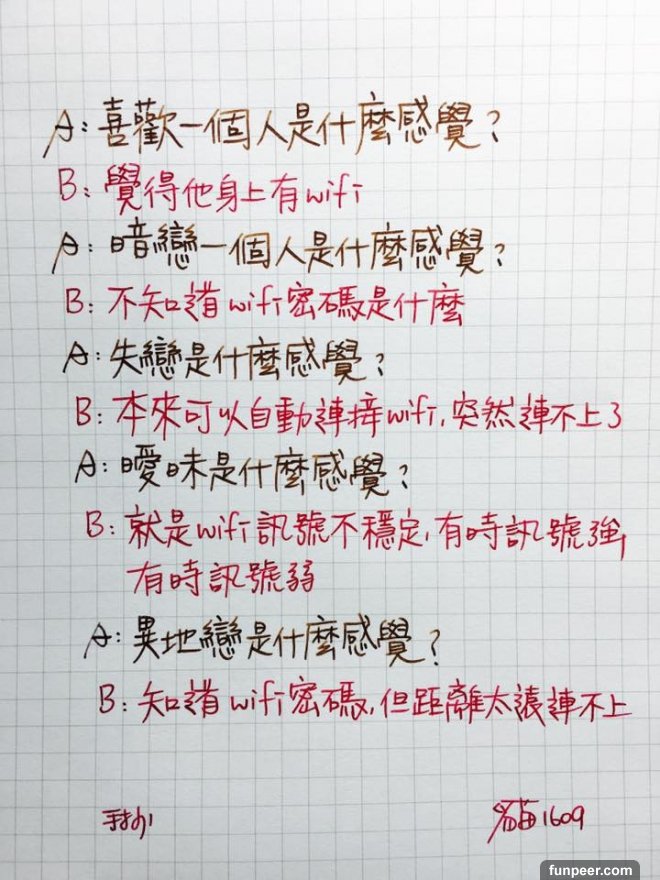 A:喜歡一個人是什麼感覺?
B:覺得他身上有wifi
A:暗戀一個人是什麼感覺?
B:不知道wifi密碼是什麼
A:失戀是什麼感覺?
B:本來可以自動連接wifi,突然連不上了
A:曖昧是什麼感覺?
B:就是wifi訊號不穩定,有時訊號強,
有時訊號弱
A:異地戀是什麼感覺?
B:知道wifi密碼,但距離太遠連不上
貓1609
funpeer.com